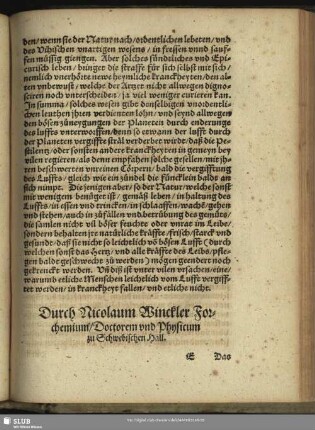 den/ wenn sie der Natur nach/ ordentlichen lebeten/ vnd
des Vihischen vnartigen wesens/ in fressen vnnd sauf-
fen müssig giengen. Aber solches sündtliches vnd Epi-
curisch leben/ bringet die straffe für sich selbst mit sich/
nemlich vnerhörte newe heymliche kranckheyten/ den al-
ten vnbewust/ welche der Artzet nicht allwegen digno-
sciren noch vnterscheiden/ ja viel weniger curieren kan.
In summa/ solches wesen gibt denselbigen vnordentli-
chen leuthen jhren verdienten lohn/ vnd seynd allwegen
den bösen zuneygungen der Planeten durch enderunge
des luffts vnterworffen/ denn so etwann der lufft durch
der Planeten vergiffte stral verderbet wirdt/ daß die Pe-
stilentz/ oder sonsten andere kranckheyten in gemeyn bey
vilen regieren/ als denn empfahen solche gesellen/ mit jh-
ren beschwerten vnreinen Cörpern/ bald die vergifftung
des Luffts/ gleich wie ein zündel die füncklein bald an
sich nimpt. Die jenigen aber/ so der Natur/ welche sonst
mit wenigem benüget ist/ gemäß leben/ in haltung des
Luffts/ in essen vnd trincken/ in schlaaffen/ wache/ gehen
vnd stehen/ auch in zufällen vnd betrübung des gemüts/
die samlen nicht vil böser feuchte oder vnrat im Leibe/
sondern behalten jre natürliche kräffte/ frisch/ starck vnd
gesunde/ daß sie nicht so leichtlich vō bösen Lufft (durch
welchen sonst das Hertz/ vnd alle kräffte des Leibs/ pfle-
gen bald geschwecht zu werden) mögen geendert noch
gekrencket werden. Vñ diß ist vnter vilen vrsachen/ eine/
warumb etliche Menschen leichtlich vom Lufft vergiff-
tet werden/ in kranckheyt fallen/ vnd etliche nicht.
Durch Nicolaum Winckler For-
chemium/ Doctorem vnd Physicum
zu Schwebischen Hall.
E Das
SLUB